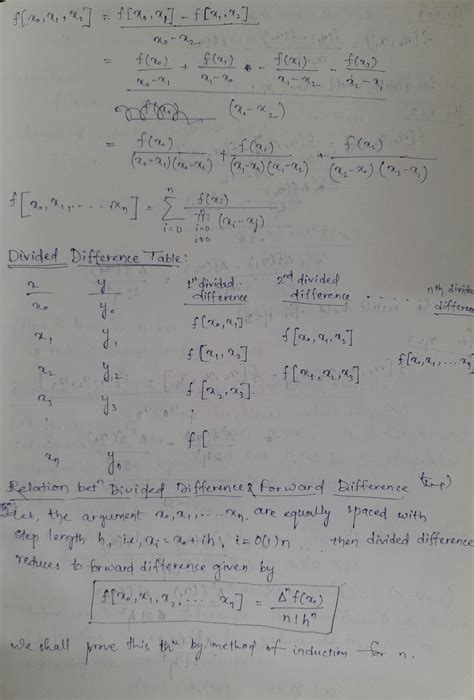 f[x₀,x₁,x₂] = (f[x₀,x₁] - f[x₁,x₂]) / (x₀-x₂)
= (f(x₀)/(x₀-x₁) + f(x₁)/(x₁-x₀) - f(x₁)/(x₁-x₂) - f(x₂)/(x₂-x₁)) / (x₀-x₂)
= f(x₀)/((x₀-x₁)(x₀-x₂)) + f(x₁)/((x₁-x₀)(x₁-x₂)) + f(x₂)/((x₂-x₀)(x₂-x₁))
f[x₀,x₁,.....,xₙ] = Σ_{i=0}^{n} f(xᵢ) / Π (xᵢ-xⱼ)
Divided Difference Table:
x y 1st divided difference 2nd divided difference ..... nth divided
x₀ y₀
f[x₀,x₁]
x₁ y₁ f[x₀,x₁,x₂]
f[x₁,x₂] f[x₀,x₁,....xₙ]
x₂ y₂ f[x₁,x₂,x₃]
f[x₂,x₃]
x₃ y₃
⋮ ⋮
f[
xₙ yₙ
Relation betn Divided Difference & Forward Difference (Imp)
Let, the argument x₀,x₁,.....xₙ are equally spaced with
step length h, i.e, xᵢ = x₀+ih, i=0(1)n .. then divided difference
reduces to forward difference given by
f[x₀,x₁,x₂,.....xₙ] = Δⁿf(x₀) / n!hⁿ
We shall prove this thm by method of induction for n.